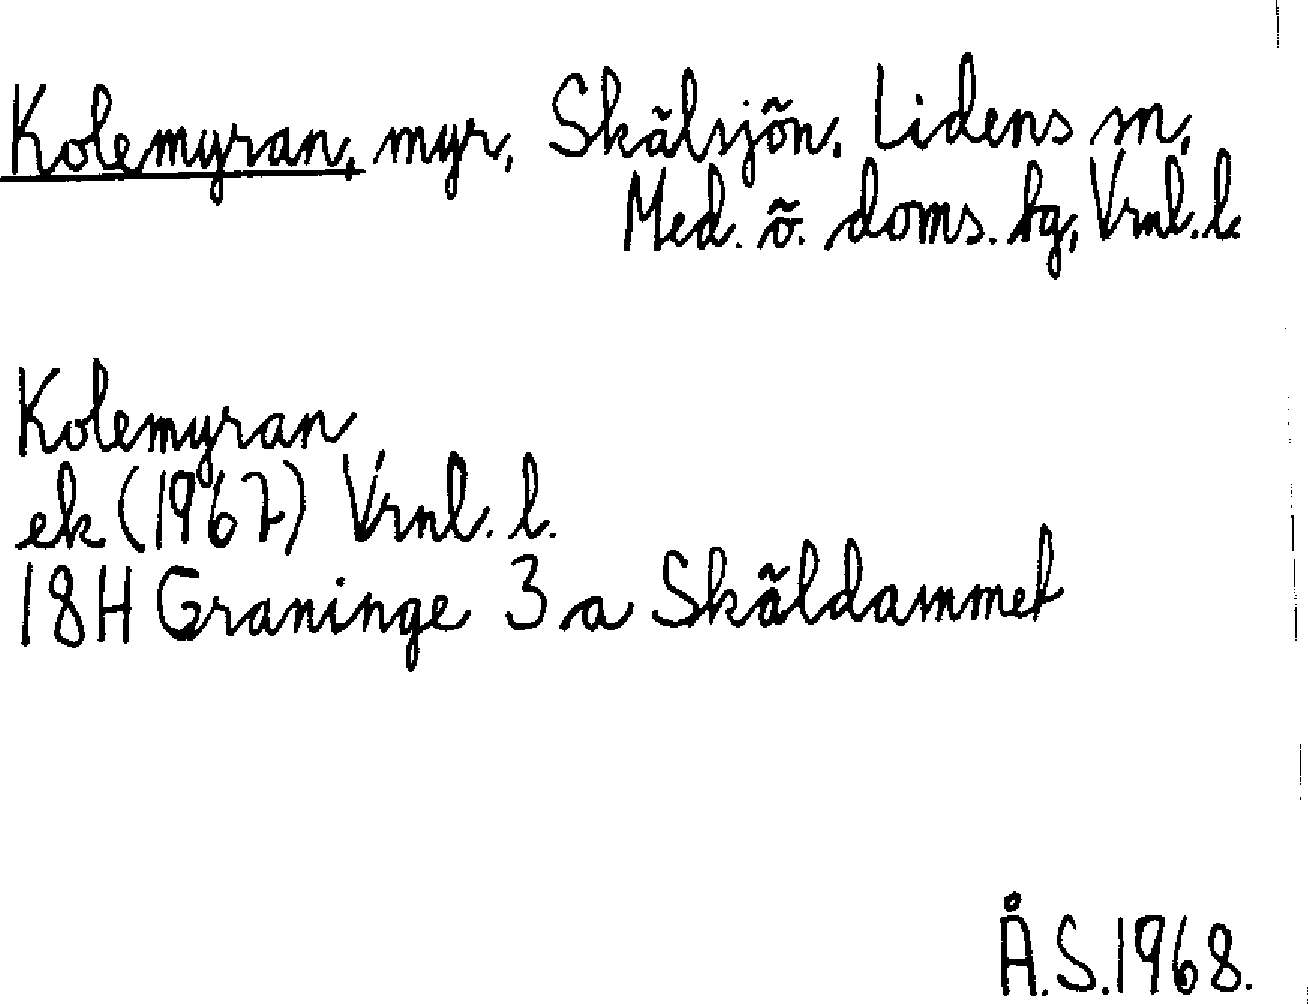 Kolemyran, myr, Skälsjön, Lidens sn,
Med. ö. doms. tg, Vrnl. l.
Kolemyran
ek (1967) Vrnl. l.
18H Graninge 3a Skäldammet
Å.S.1968.